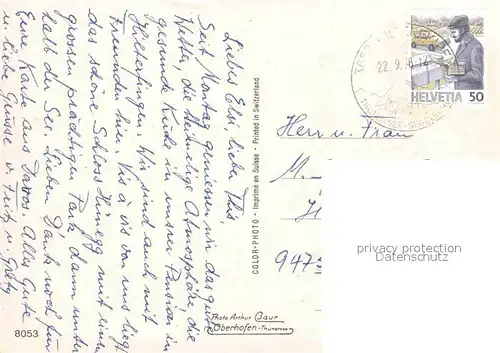 Liebes Elsi, lieber This,
Seit Montag geniessen wir das gute
Wetter, die heimelige Atmosphäre, die
gesunde Küche in unserer Pension in
Hilterfingen. Wir sind auch mit
Freunden hier. Vis à vis von uns liegt
das schöne Schloss Hünegg mit einem
grossen prächtigen Park, dann unter
halb der See. Lieben Dank noch für
Eure Karte aus Davos. Alles Gute
u. liebe Grüsse v. Fritz u.
COLOR-PHOTO - Imprimé en Suisse - Printed in Switzerland
Photo Arthur Baur
Oberhofen-Thunersee
8053
22. 9.
HELVETIA 50
Herrn u. Frau
M.
947
privacy protection
Datenschutz